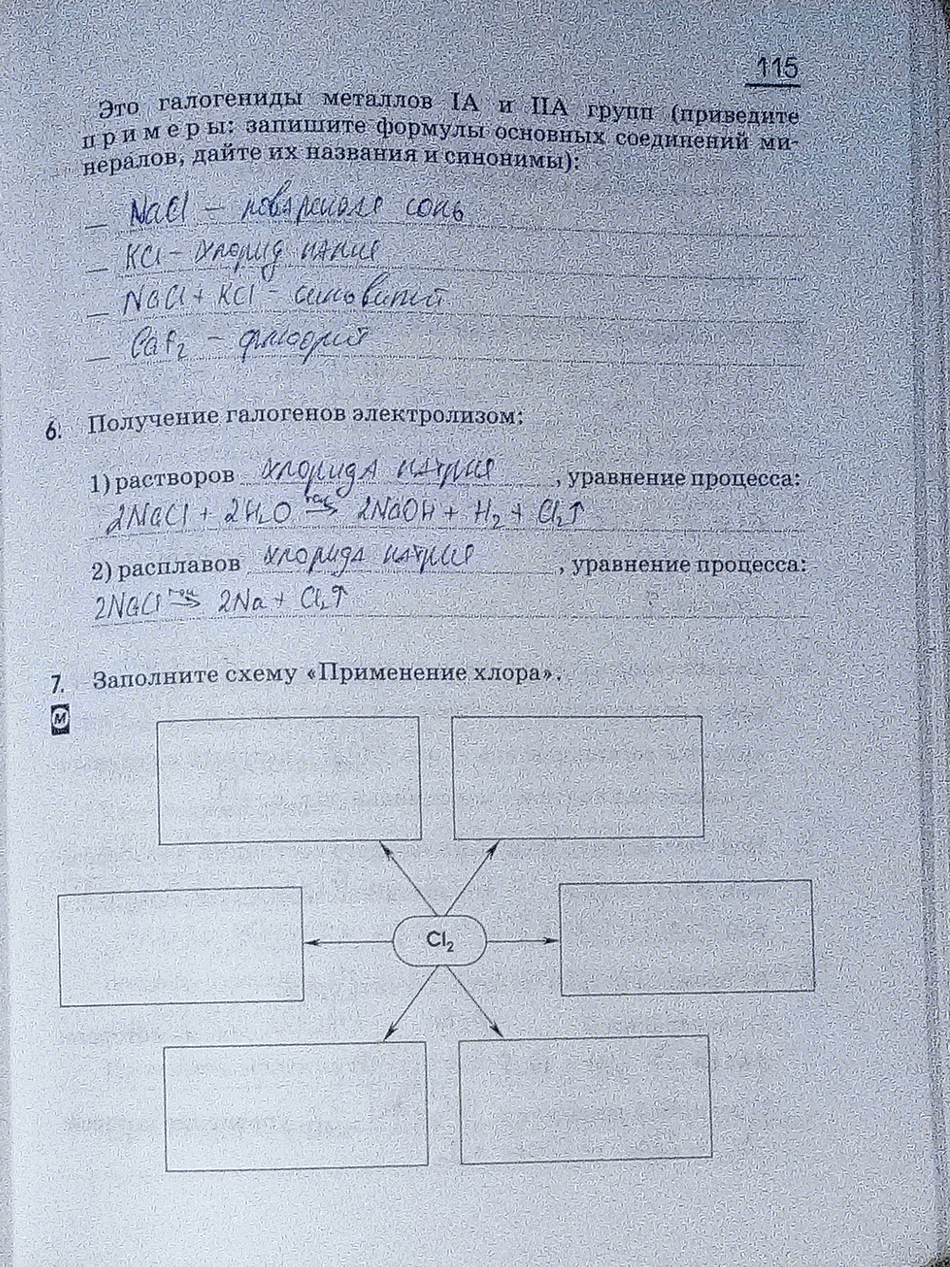 115
Это галогениды металлов IА и IIА групп (приведите
примеры: запишите формулы основных соединений ми-
нералов, дайте их названия и синонимы):
NaCl – поваренная соль
KCl – хлорид калия
NaCl + KCl – сильвинит
CaF₂ – флюорит
6. Получение галогенов электролизом:
1) растворов хлорида натрия, уравнение процесса:
2NaCl + 2H₂O ток→ 2NaOH + H₂ + Cl₂↑
2) расплавов хлорида натрия, уравнение процесса:
2NaCl ток→ 2Na + Cl₂↑
7. Заполните схему «Применение хлора».
М
Cl₂